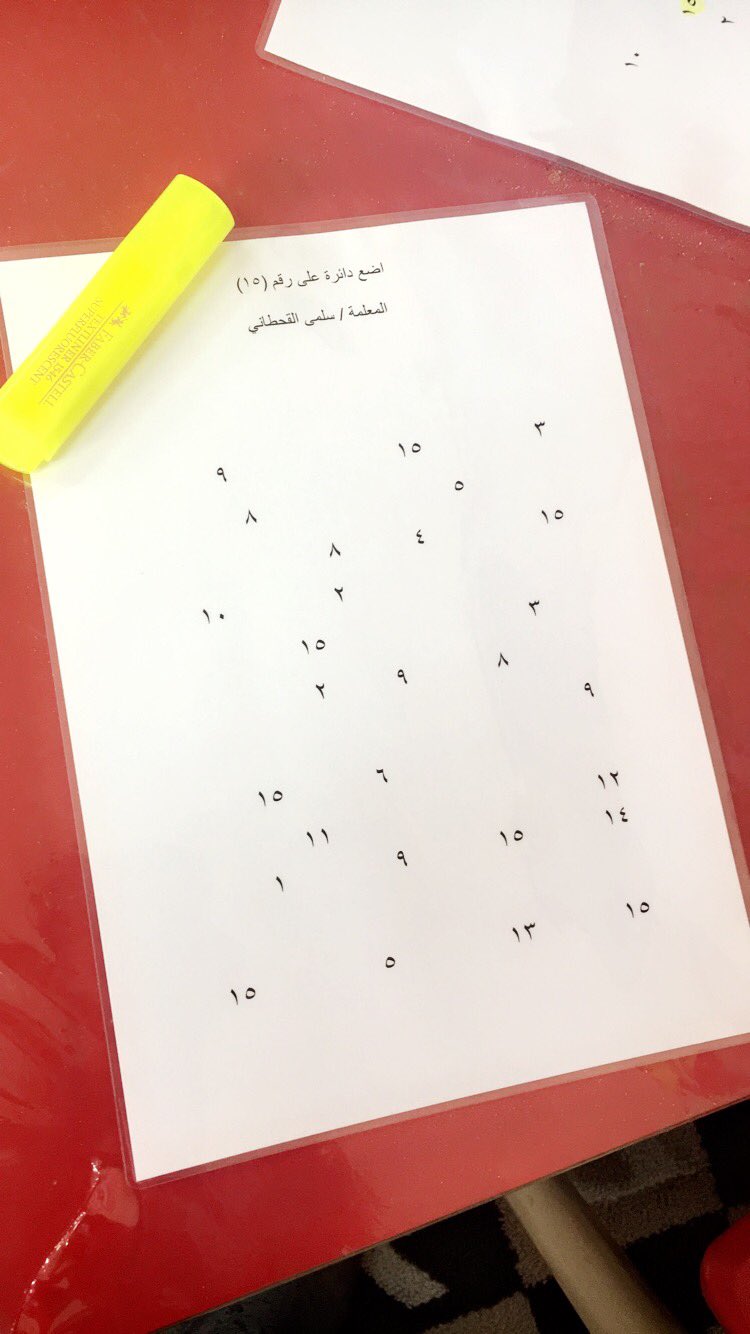 ١٥
٢
١٠
اضع دائرة على رقم (١٥)
المعلمة / سلمى القحطاني
FABER CASTELL
TEXTLINER 1546
SUPERFLUORESCENT
٣
١٥
٩
٥
٨
١٥
٤
٨
٢
٣
١٠
١٥
٨
٩
٢
٩
٦
١٢
١٥
١٤
١١
١٥
٩
١
١٥
١٣
٥
١٥